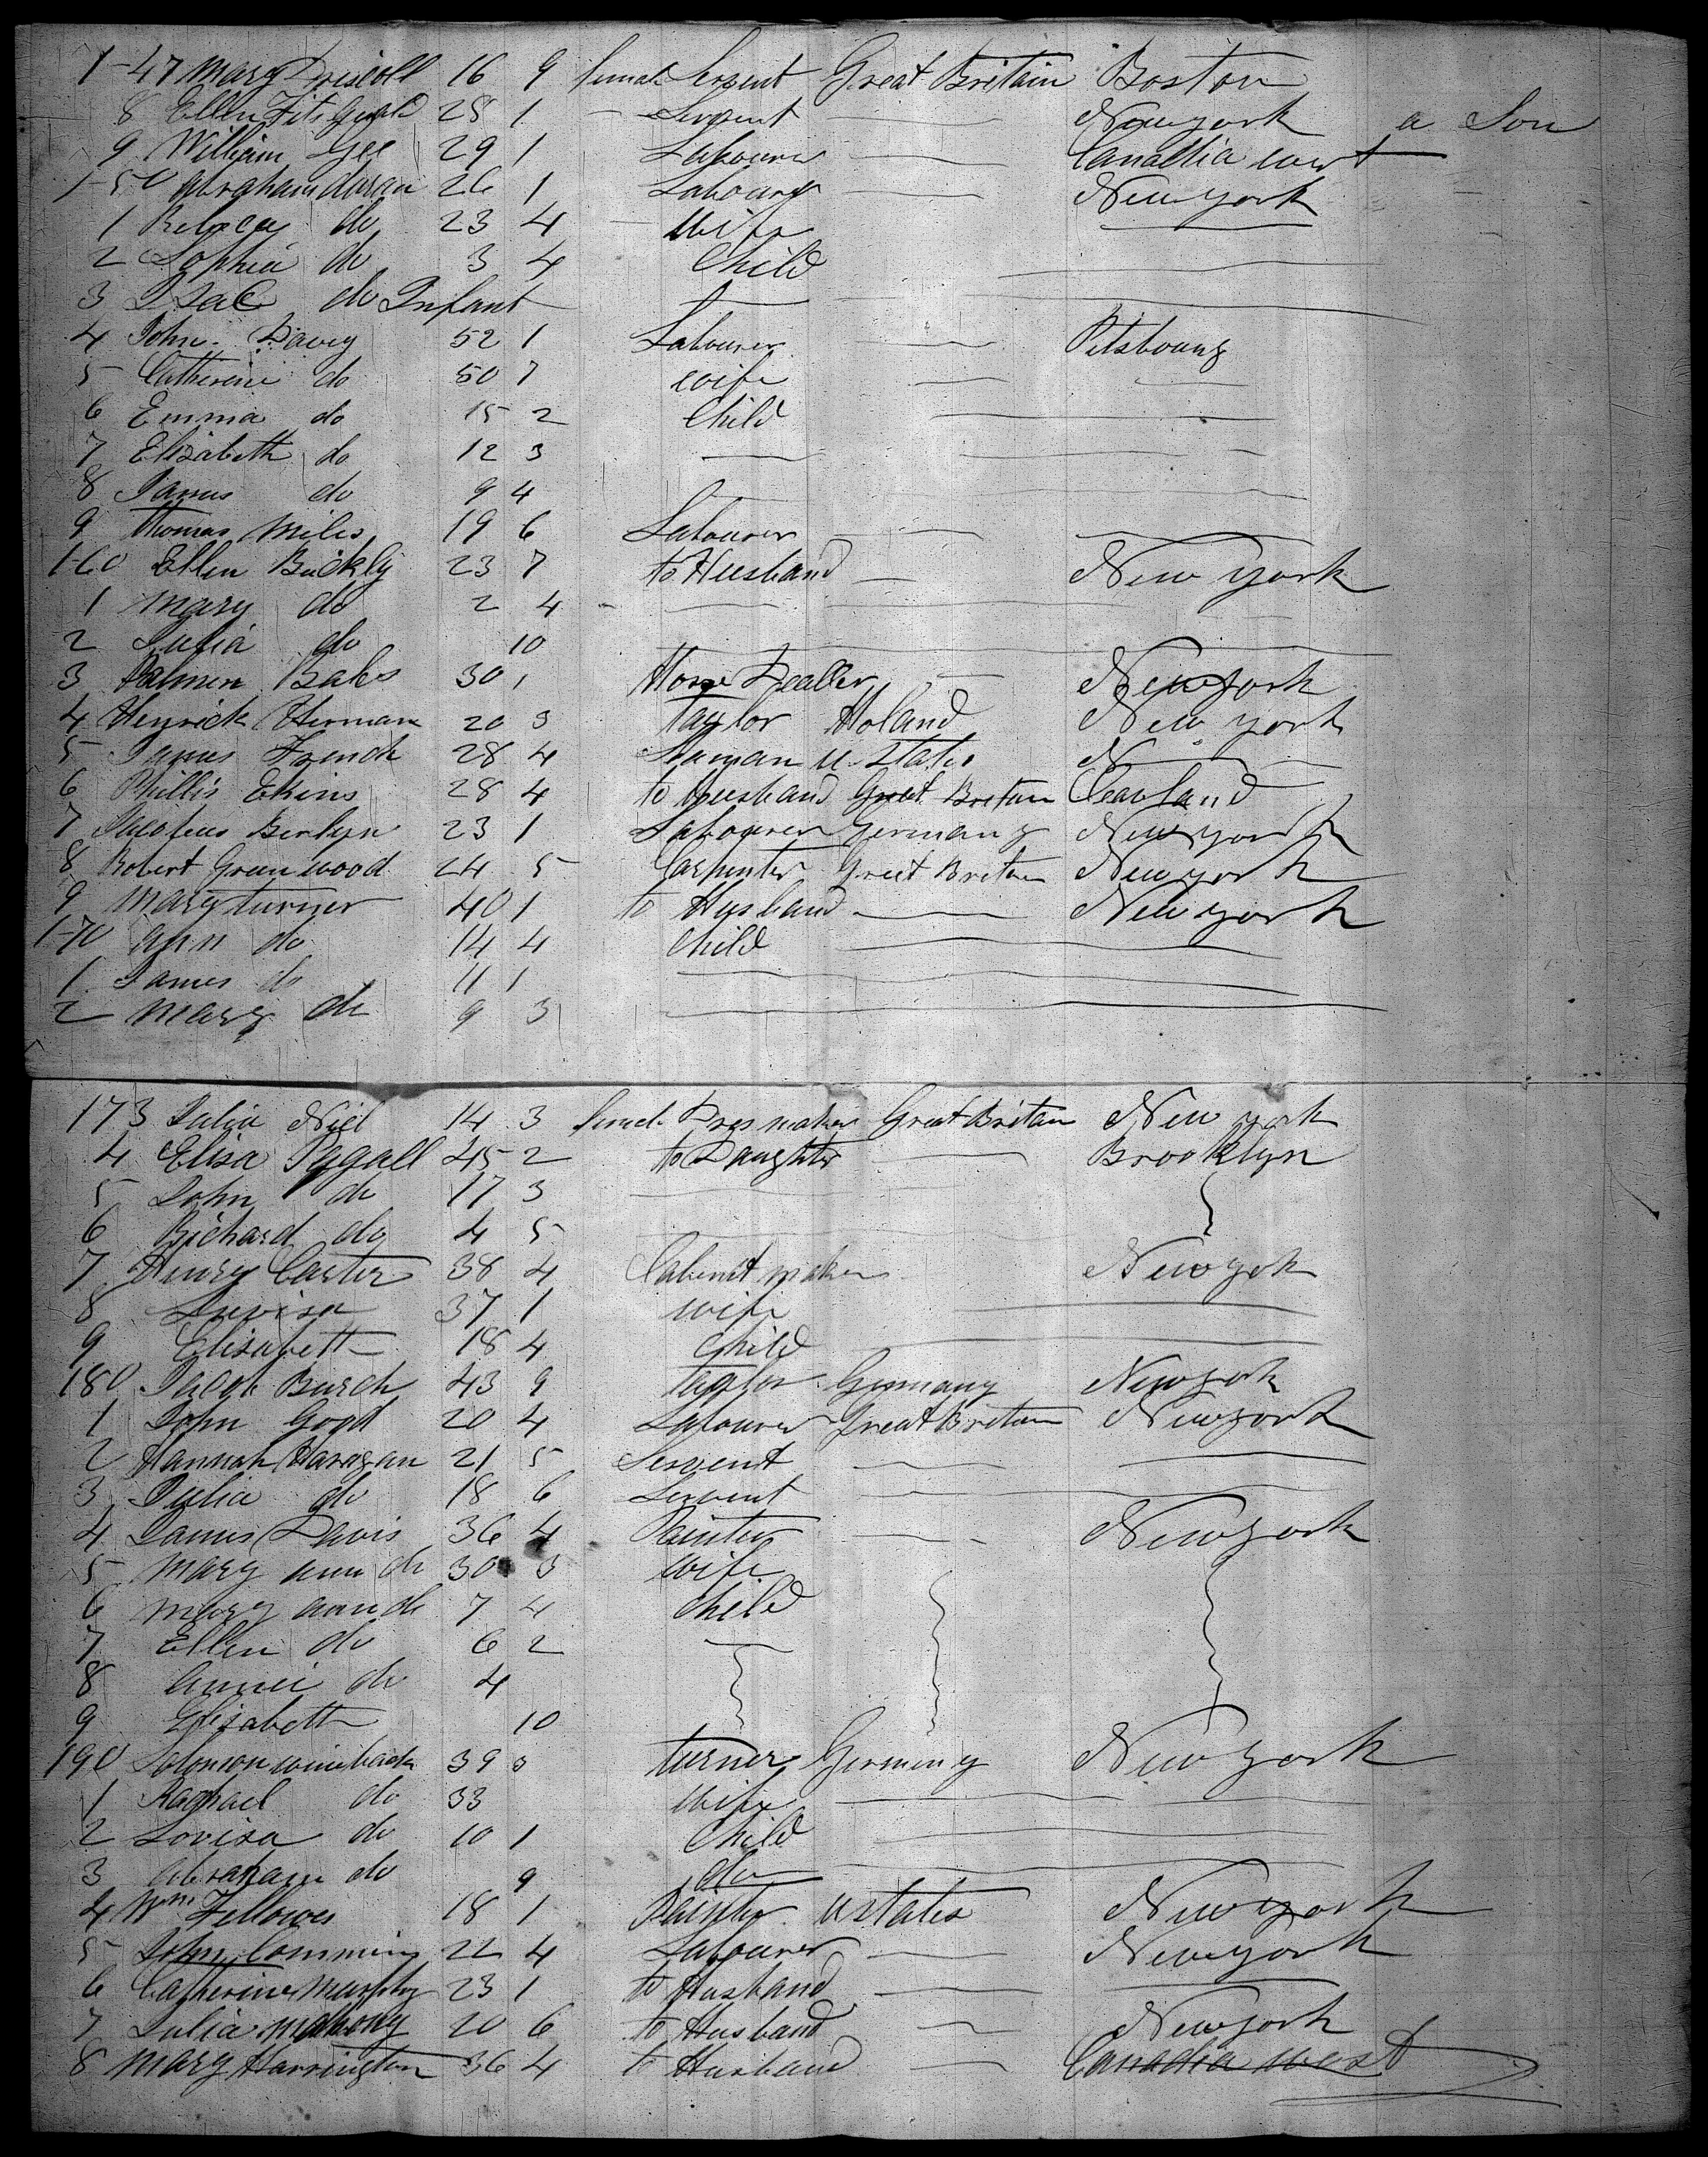 1-47 Mary Driscoll 16 9 female Servent Great Britain Boston
8 Ellen Fitsgerald 28 1 Servent Newyork a Son
9 William Gee 29 1 Labourer Canadia west
1-50 abraham 26 1 Labourer Newyork
1 do 23 4 wife
2 Sophia do 3 4 Child
3 Isac do Infant
4 John Davey 52 1 Labourer Pitsbourg
5 Catherine do 50 7 wife
6 Emma do 15 2 Child
7 Elizabeth do 12 3
8 James do 9 4
9 Thomas Miles 19 6 Labourer
1-60 Ellen Buckly 23 7 to Husband New york
1 Mary do 2 4
2 Julia do 10
3 30 1 Horse Dealler Newyork
4 Heyrick Herman 20 3 Taylor Holand New york
5 James French 28 4 Seaman U States N
6 Phillis Ekins 28 4 to Husband Great Britain Cleavland
7 23 1 Labourer Germany Newyork
8 Robert Greenwood 24 5 Carpenter Great Britain Newyork
9 Mary turner 40 1 to Husband Newyork
1-70 ann do 14 4 Child
1 James do 11 1
2 Mary do 9 3
173 Julia Niel 14 3 female Dresmaker Great Britain New york
4 Elisa Pygall 45 2 to Daughter Brooklyn
5 John do 17 3
6 Richard do 4 5
7 Henry Carter 38 4 Cabenet maker Newyok
8 Luvisa 37 1 wife
9 Elisabeth 18 4 Child
180 Jacob Burch 43 9 Taylor Germany Newyork
1 John 20 4 Labourer Great Britain Newyork
2 Hannah Haragan 21 5 Servent
3 Julia do 18 6 Servent
4 James Davis 36 4 Painter Newyork
5 Mary ann do 30 3 wife
6 Mary ann do 7 4 Child
7 Ellen do 6 2
8 annie do 4
9 Elisabeth 10
190 Solomon 39 3 turner Germeny Newyork
1 Raphael do 33 wife
2 Lovisa do 10 1 Child
3 abraham do 9 do
4 Wm Fellowes 18 1 Painter U States Newyork
5 John Comming 22 4 Labourer Newyork
6 Catherine Murphy 23 1 to Husband
7 Julia Mahony 20 6 to Husband Newyork
8 Mary Harrington 36 4 to Husband Canadia west